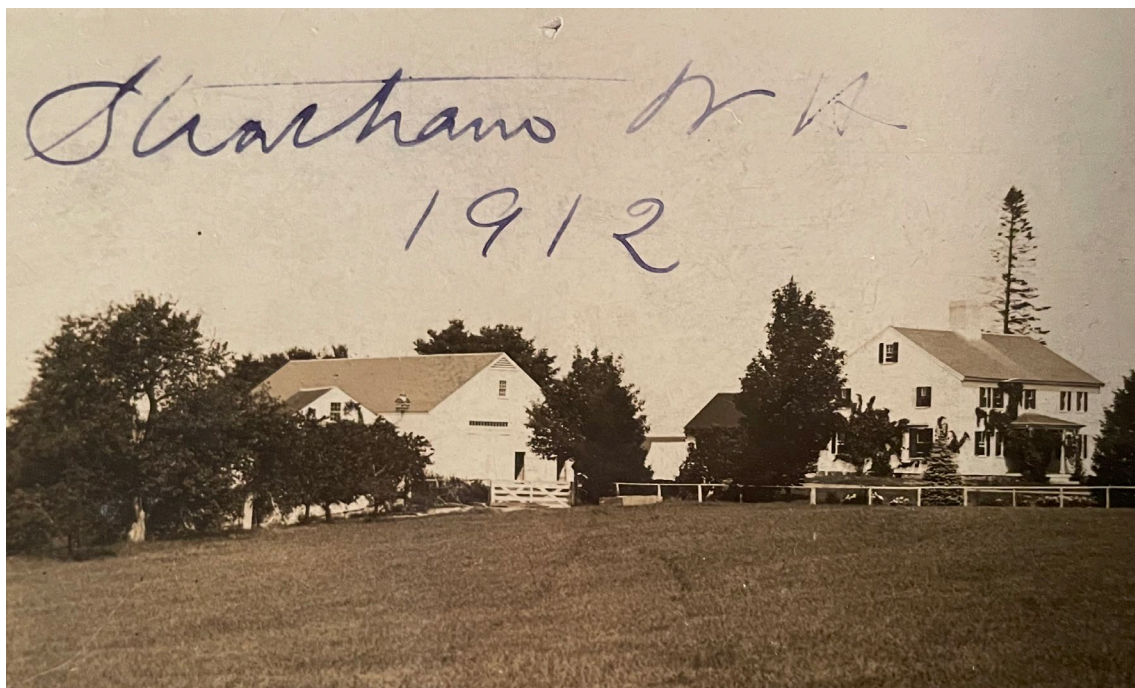 Stratham N H
1912